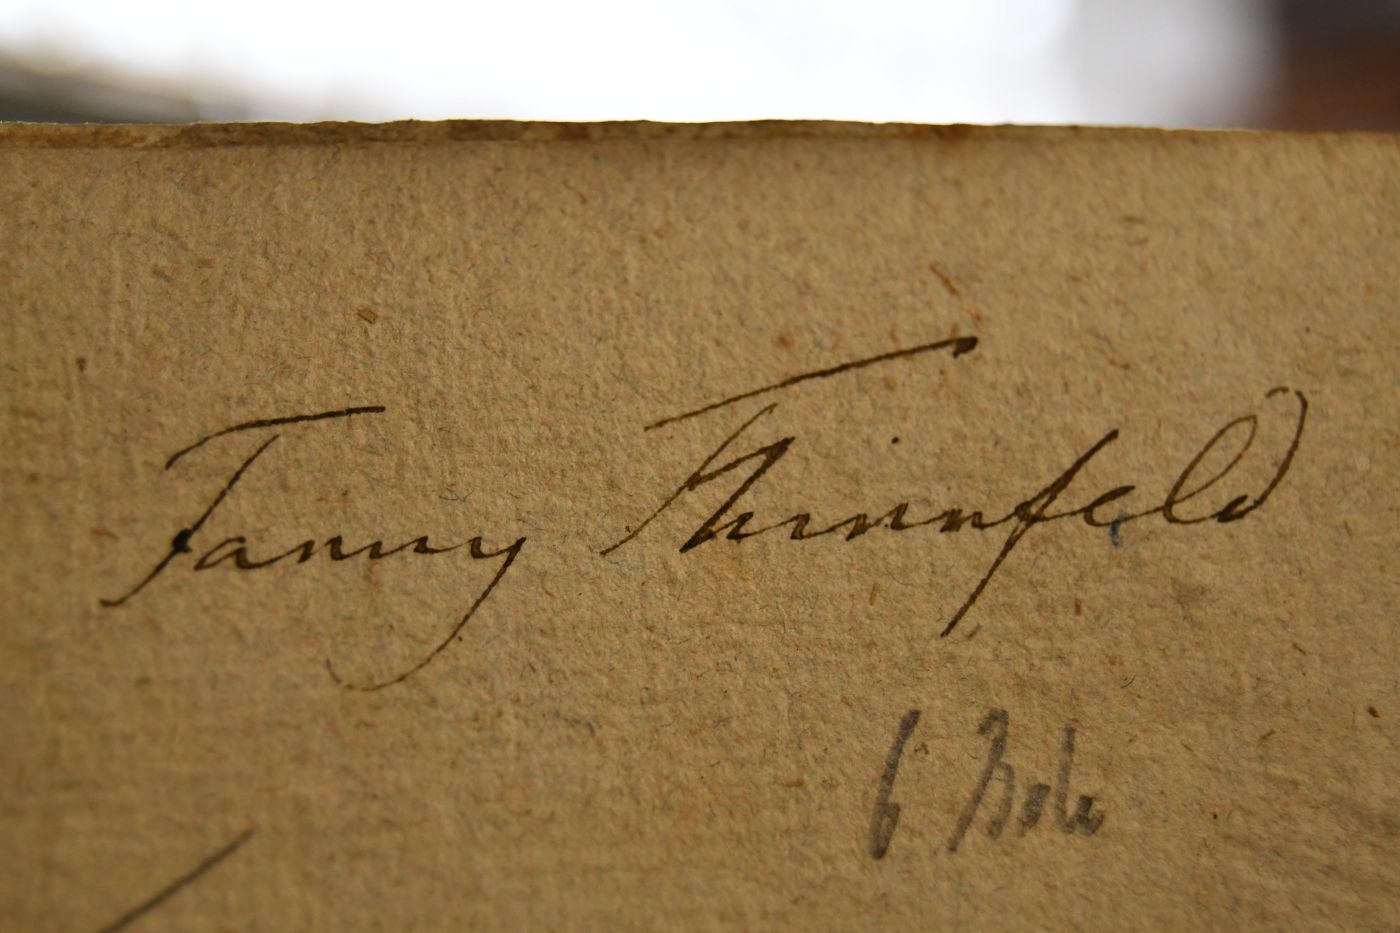 Fanny Thinnfeld
6 Bde